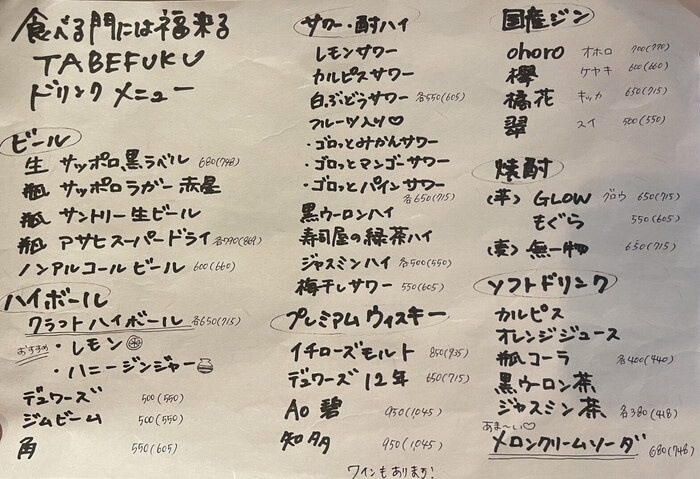 食べる門には福来る
TABEFUKU
ドリンクメニュー
ビール
生 サッポロ黒ラベル 680(748)
瓶 サッポロラガー赤星
瓶 サントリー生ビール
瓶 アサヒスーパードライ 各790(869)
ノンアルコールビール 600(660)
ハイボール
クラフトハイボール 各650(715)
おすすめ ・レモン
・ハニージンジャー
デュワーズ 500(550)
ジムビーム 500(550)
角 550(605)
サワー・酎ハイ
レモンサワー
カルピスサワー
白ぶどうサワー 各550(605)
フルーツ入り♡
・ゴロっとみかんサワー
・ゴロっとマンゴーサワー
・ゴロっとパインサワー
各650(715)
黒ウーロンハイ
寿司屋の緑茶ハイ
ジャスミンハイ 各500(550)
梅干しサワー 550(605)
プレミアムウィスキー
イチローズモルト 850(935)
デュワーズ12年 650(715)
Ao 碧 950(1,045)
知多 950(1,045)
ワインもあります!
国産ジン
ohoro オホロ 700(770)
欅 ケヤキ 600(660)
橘花 キッカ 650(715)
翠 スイ 500(550)
焼酎
(芋) GLOW グロウ 650(715)
もぐら 550(605)
(麦) 無一物 650(715)
ソフトドリンク
カルピス
オレンジジュース
瓶コーラ 各400(440)
黒ウーロン茶
ジャスミン茶 各380(418)
あま〜い♡
メロンクリームソーダ 680(748)